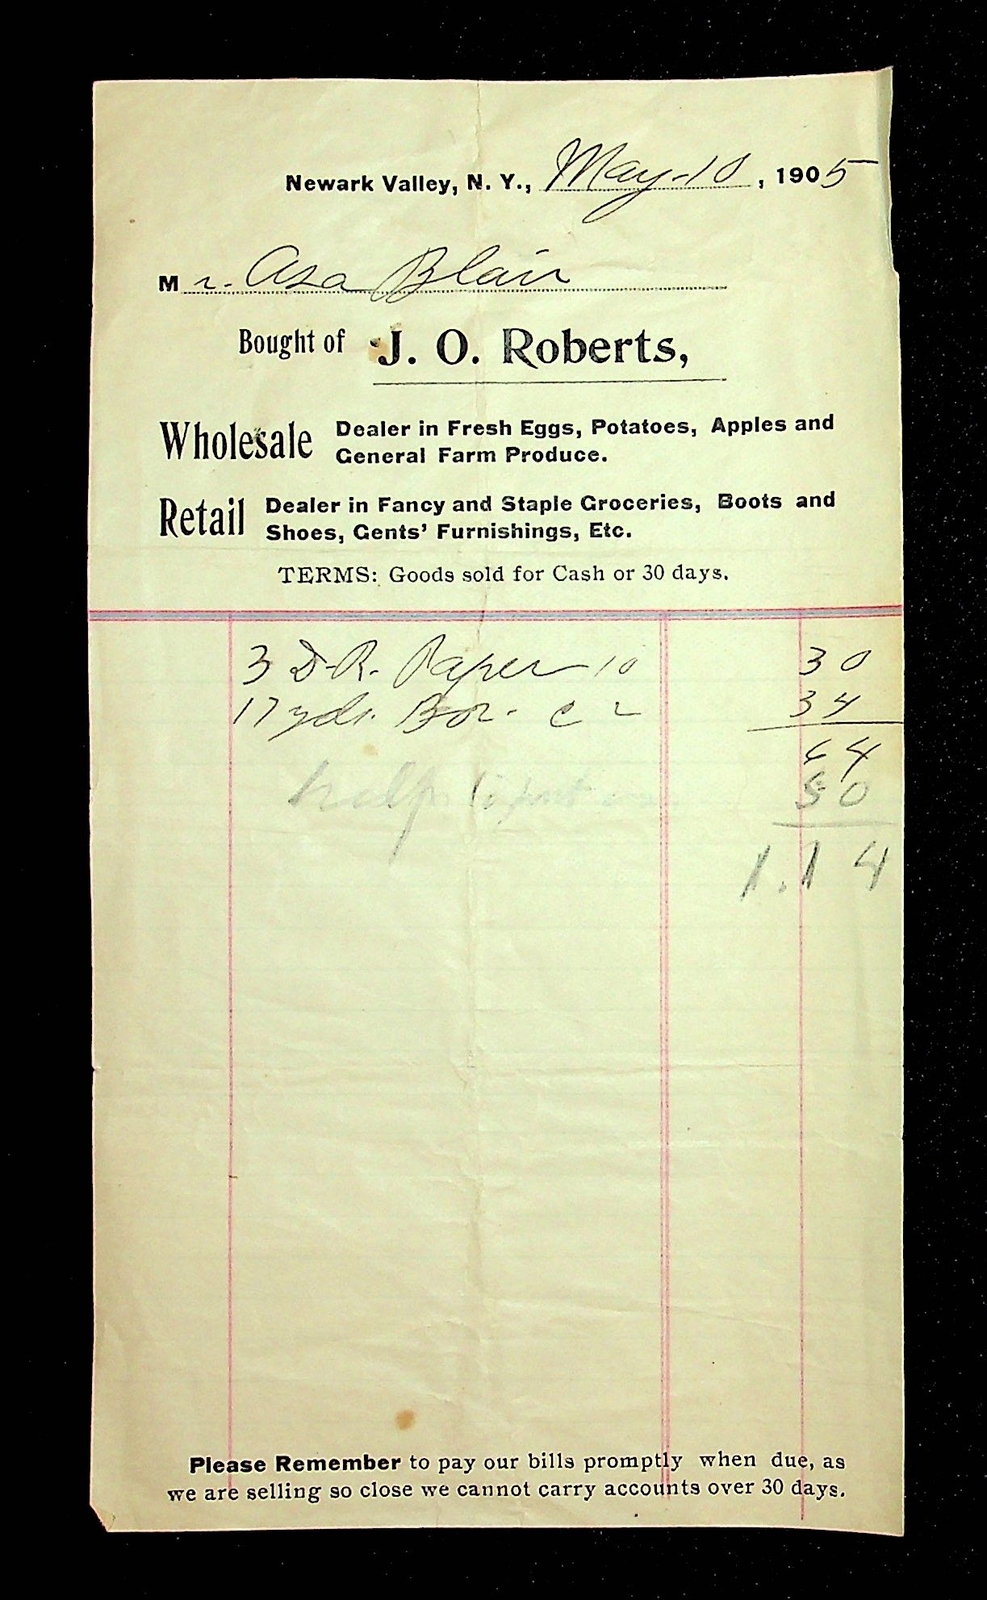 Newark Valley, N. Y., May-10, 1905
Mr. Asa Blair
Bought of J. O. Roberts,
Wholesale Dealer in Fresh Eggs, Potatoes, Apples and
General Farm Produce.
Retail Dealer in Fancy and Staple Groceries, Boots and
Shoes, Gents' Furnishings, Etc.
TERMS: Goods sold for Cash or 30 days.
3 D-R. Paper 10 30
17 yds. Bor. c 2 34
64
half 50
1.14
Please Remember to pay our bills promptly when due, as
we are selling so close we cannot carry accounts over 30 days.